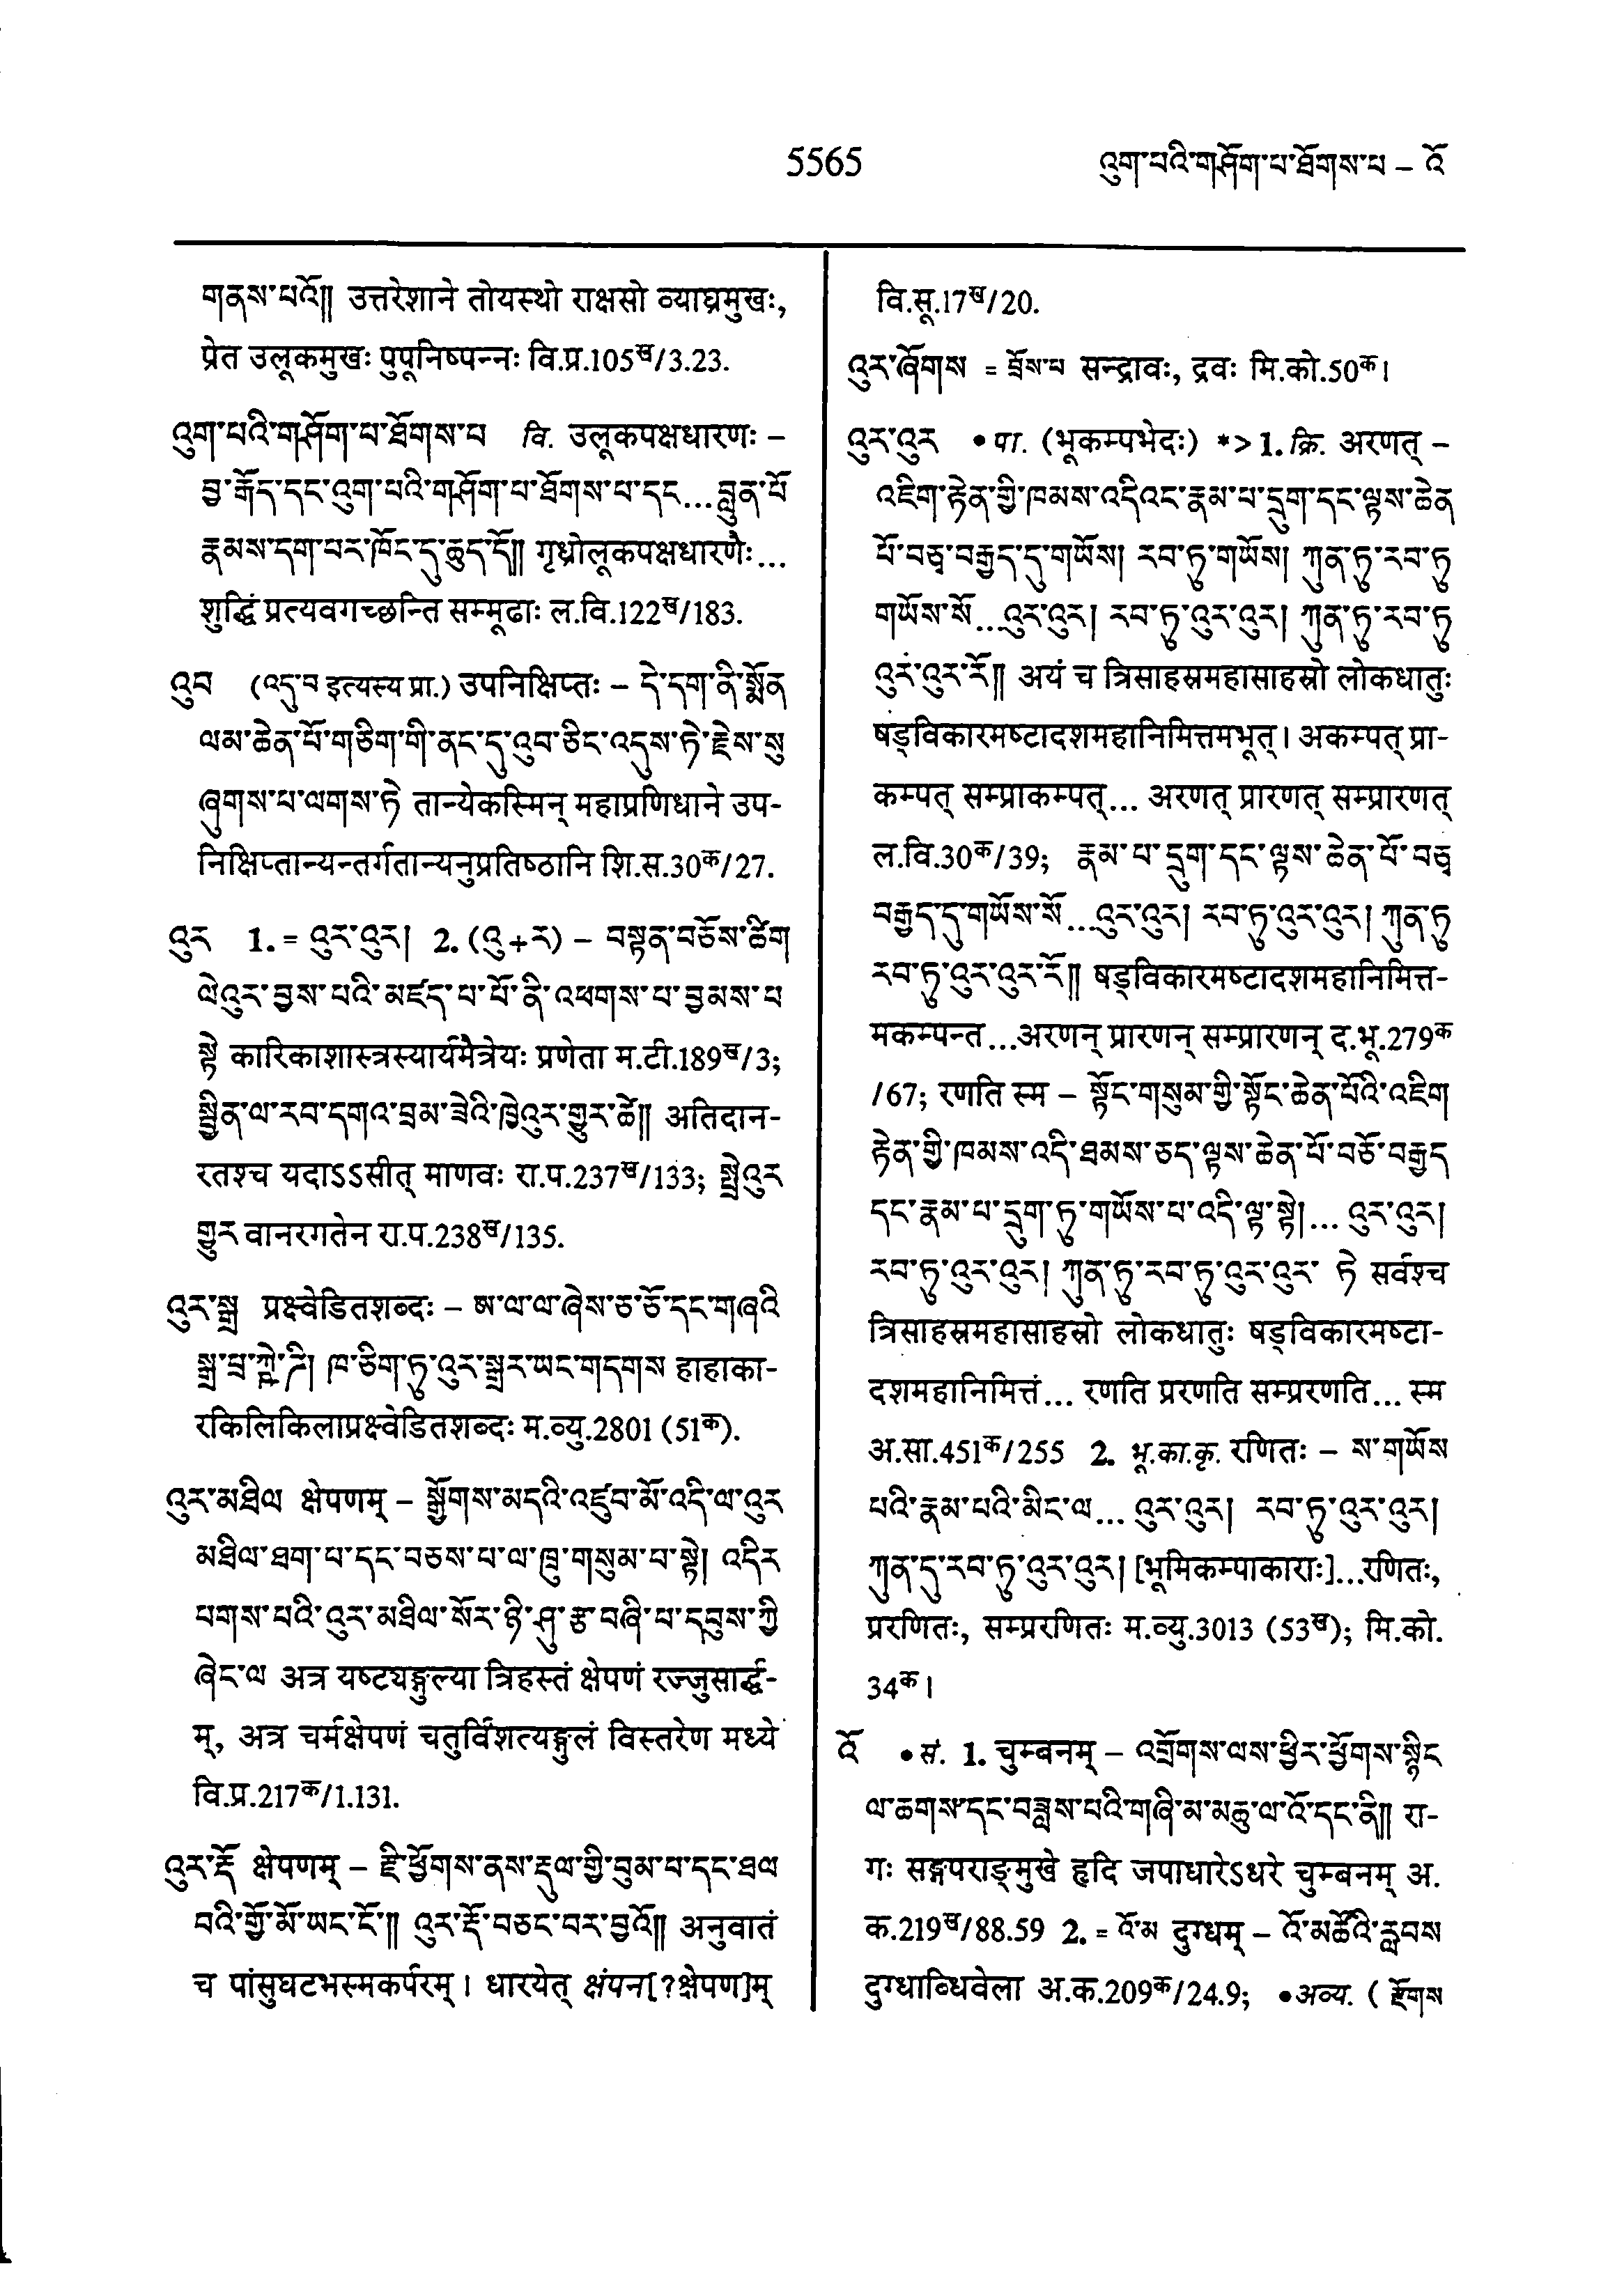 5565
འུག་པའི་གཤོག་པ་ཐོགས་པ – འོ
གནས་པའོ།། उत्तरेशाने तोयस्थो राक्षसो व्याघ्रमुखः,
प्रेत उलूकमुखः पुपूनिष्पन्नः वि.प्र.105ख/3.23.
འུག་པའི་གཤོག་པ་ཐོགས་པ वि. उलूकपक्षधारणः –
བྱ་རྒོད་དང་འུག་པའི་གཤོག་པ་ཐོགས་པ་དང...བླུན་པོ
རྣམས་དག་པར་ཁོང་དུ་ཆུད་དོ།། गृध्रोलूकपक्षधारणैः...
शुद्धिं प्रत्यवगच्छन्ति सम्मूढाः ल.वि.122ख/183.
འུབ (འདུ་བ इत्यस्य प्रा.) उपनिक्षिप्तः – དེ་དག་ནི་སྨོན
ལམ་ཆེན་པོ་གཅིག་གི་ནང་དུ་འུབ་ཅིང་འདུས་ཏེ་རྗེས་སུ
ཞུགས་པ་ལགས་ཏེ तान्येकस्मिन् महाप्रणिधाने उप-
निक्षिप्तान्यन्तर्गतान्यनुप्रतिष्ठानि शि.स.30क/27.
འུར 1. = འུར་འུར། 2. (འུ+ར) – བསྟན་བཅོས་ཚིག
ལེའུར་བྱས་པའི་མཛད་པ་པོ་ནི་འཕགས་པ་བྱམས་པ
སྟེ कारिकाशास्त्रस्यार्यमैत्रेयः प्रणेता म.टी.189ख/3;
སྦྱིན་ལ་རབ་དགའ་བྲམ་ཟེའི་ཁྱེའུར་གྱུར་ཚེ།། अतिदान-
रतश्च यदाऽऽसीत् माणवः रा.प.237ख/133; སྤྲེའུར
གྱུར वानरगतेन रा.प.238ख/135.
འུར་སྒྲ प्रक्ष्वेडितशब्दः – ཨ་ལ་ལ་ཞེས་ཅ་ཅོ་དང་གཞའི
སྒྲ་བྲ་ཀླེ་ཏི། ཁ་ཅིག་ཏུ་འུར་སྒྲར་ཡང་གདགས हाहाका-
रकिलिकिलाप्रक्ष्वेडितशब्दः म.व्यु.2801 (51क).
འུར་མཐིལ क्षेपणम् – སྒྱོགས་མདའི་འཛུབ་མོ་འདི་ལ་འུར
མཐིལ་ཐག་པ་དང་བཅས་པ་ལ་ཁྲུ་གསུམ་པ་སྟེ། འདིར
པགས་པའི་འུར་མཐིལ་སོར་ཉི་ཤུ་རྩ་བཞི་པ་དབུས་ཀྱི
ཞེང་ལ अत्र यष्ट्यङ्गुल्या त्रिहस्तं क्षेपणं रज्जुसार्द्ध-
म्, अत्र चर्मक्षेपणं चतुर्विंशत्यङ्गुलं विस्तरेण मध्ये
वि.प्र.217क/1.131.
འུར་རྡོ क्षेपणम् – རྗི་ཕྱོགས་ནས་རྡུལ་གྱི་བུམ་པ་དང་ཐལ
བའི་གྱོ་མོ་ཡང་ངོ་།། འུར་རྡོ་བཅང་བར་བྱའོ།། अनुवातं
च पांसुघटभस्मकर्परम्। धारयेत् क्षंपन[?क्षेपण]म्
वि.सू.17ख/20.
འུར་ཞོགས = བྲོས་པ सन्द्रावः, द्रवः मि.को.50क।
འུར་འུར • पा. (भूकम्पभेदः) *> 1. क्रि. अरणत् –
འཇིག་རྟེན་གྱི་ཁམས་འདིའང་རྣམ་པ་དྲུག་དང་ལྟས་ཆེན
པོ་བཅྭ་བརྒྱད་དུ་གཡོས། རབ་ཏུ་གཡོས། ཀུན་ཏུ་རབ་ཏུ
གཡོས་སོ...འུར་འུར། རབ་ཏུ་འུར་འུར། ཀུན་ཏུ་རབ་ཏུ
འུར་འུར་རོ།། अयं च त्रिसाहस्रमहासाहस्रो लोकधातुः
षड्विकारमष्टादशमहानिमित्तमभूत्। अकम्पत् प्रा-
कम्पत् सम्प्राकम्पत्... अरणत् प्रारणत् सम्प्रारणत्
ल.वि.30क/39; རྣམ་པ་དྲུག་དང་ལྟས་ཆེན་པོ་བཅྭ
བརྒྱད་དུ་གཡོས་སོ...འུར་འུར། རབ་ཏུ་འུར་འུར། ཀུན་ཏུ
རབ་ཏུ་འུར་འུར་རོ།། षड्विकारमष्टादशमहानिमित्त-
मकम्पन्त...अरणन् प्रारणन् सम्प्रारणन् द.भू.279क
/67; रणति स्म – སྟོང་གསུམ་གྱི་སྟོང་ཆེན་པོའི་འཇིག
རྟེན་གྱི་ཁམས་འདི་ཐམས་ཅད་ལྟས་ཆེན་པོ་བཅོ་བརྒྱད
དང་རྣམ་པ་དྲུག་ཏུ་གཡོས་པ་འདི་ལྟ་སྟེ།... འུར་འུར།
རབ་ཏུ་འུར་འུར། ཀུན་ཏུ་རབ་ཏུ་འུར་འུར་ ཏེ सर्वश्च
त्रिसाहस्रमहासाहस्रो लोकधातुः षड्विकारमष्टा-
दशमहानिमित्तं... रणति प्ररणति सम्प्ररणति... स्म
अ.सा.451क/255 2. भू.का.कृ. रणितः – ས་གཡོས
པའི་རྣམ་པའི་མིང་ལ... འུར་འུར། རབ་ཏུ་འུར་འུར།
ཀུན་དུ་རབ་ཏུ་འུར་འུར། [भूमिकम्पाकाराः]...रणितः,
प्ररणितः, सम्प्ररणितः म.व्यु.3013 (53ख); मि.को.
34क।
འོ • सं. 1. चुम्बनम् – འགྲོགས་ལས་ཕྱིར་ཕྱོགས་སྙིང
ལ་ཆགས་དང་བཟླས་པའི་གཞི་མ་མཆུ་ལ་འོ་དང་ནི།། रा-
गः सङ्गपराङ्मुखे हृदि जपाधारेऽधरे चुम्बनम् अ.
क.219ख/88.59 2. = འོ་མ दुग्धम् – འོ་མཚོའི་རླབས
दुग्धाब्धिवेला अ.क.209क/24.9; • अव्य. ( རྫོགས